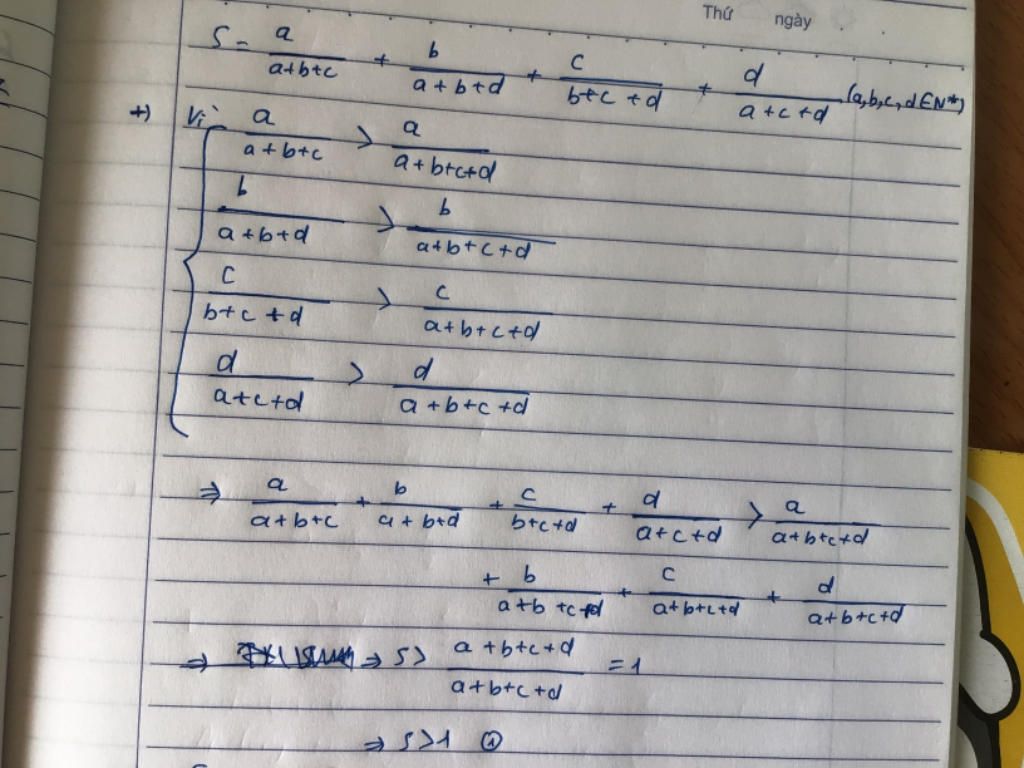 Thứ ngày
S = a/(a+b+c) + b/(a+b+d) + c/(b+c+d) + d/(a+c+d) (a,b,c,d ∈ N*)
+) Vì a/(a+b+c) > a/(a+b+c+d)
b/(a+b+d) > b/(a+b+c+d)
c/(b+c+d) > c/(a+b+c+d)
d/(a+c+d) > d/(a+b+c+d)
⇒ a/(a+b+c) + b/(a+b+d) + c/(b+c+d) + d/(a+c+d) > a/(a+b+c+d)
+ b/(a+b+c+d) + c/(a+b+c+d) + d/(a+b+c+d)
⇒ ⇒ S > (a+b+c+d)/(a+b+c+d) = 1
⇒ S > 1 ①